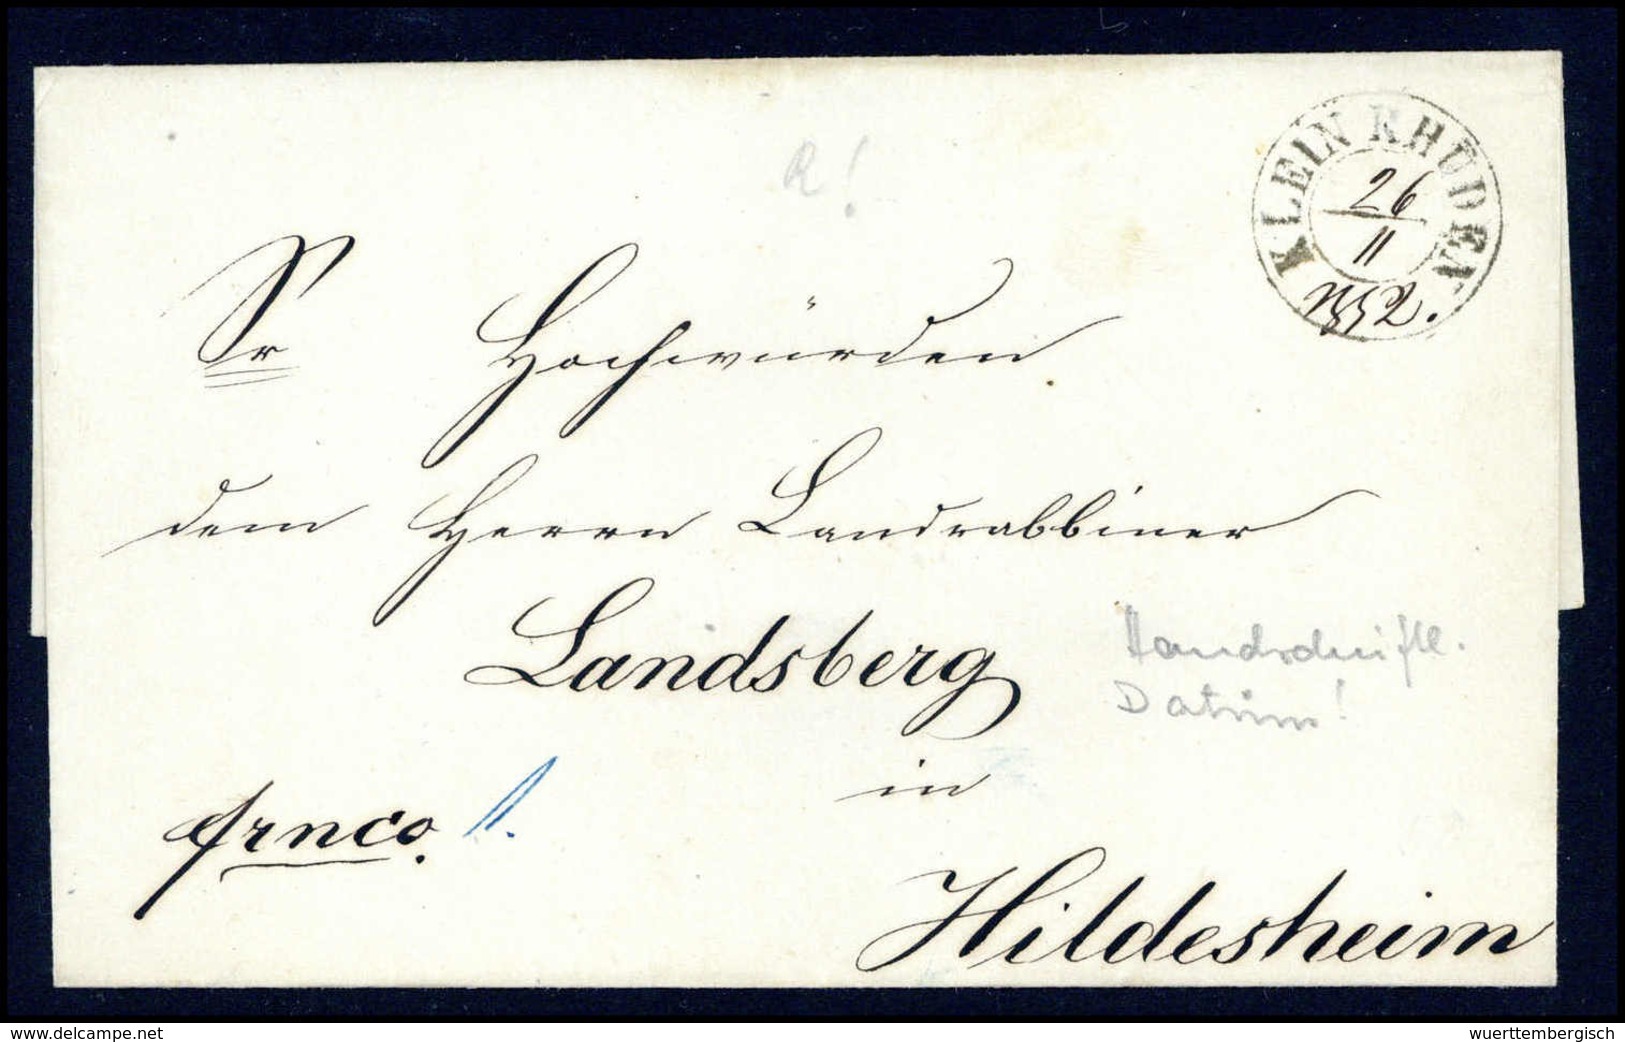 KLEIN RHÜDEN
26
11
1852.
R!
Sr Hochwürden
dem Herrn Landrabbiner
Landsberg
Handschriftl.
Datum!
in
franco.
Hildesheim
www.delcampe.net
wuerttembergisch